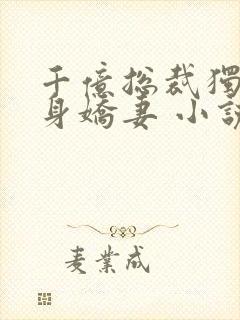 千億总裁獨
身嬌妻 小説
麦業成